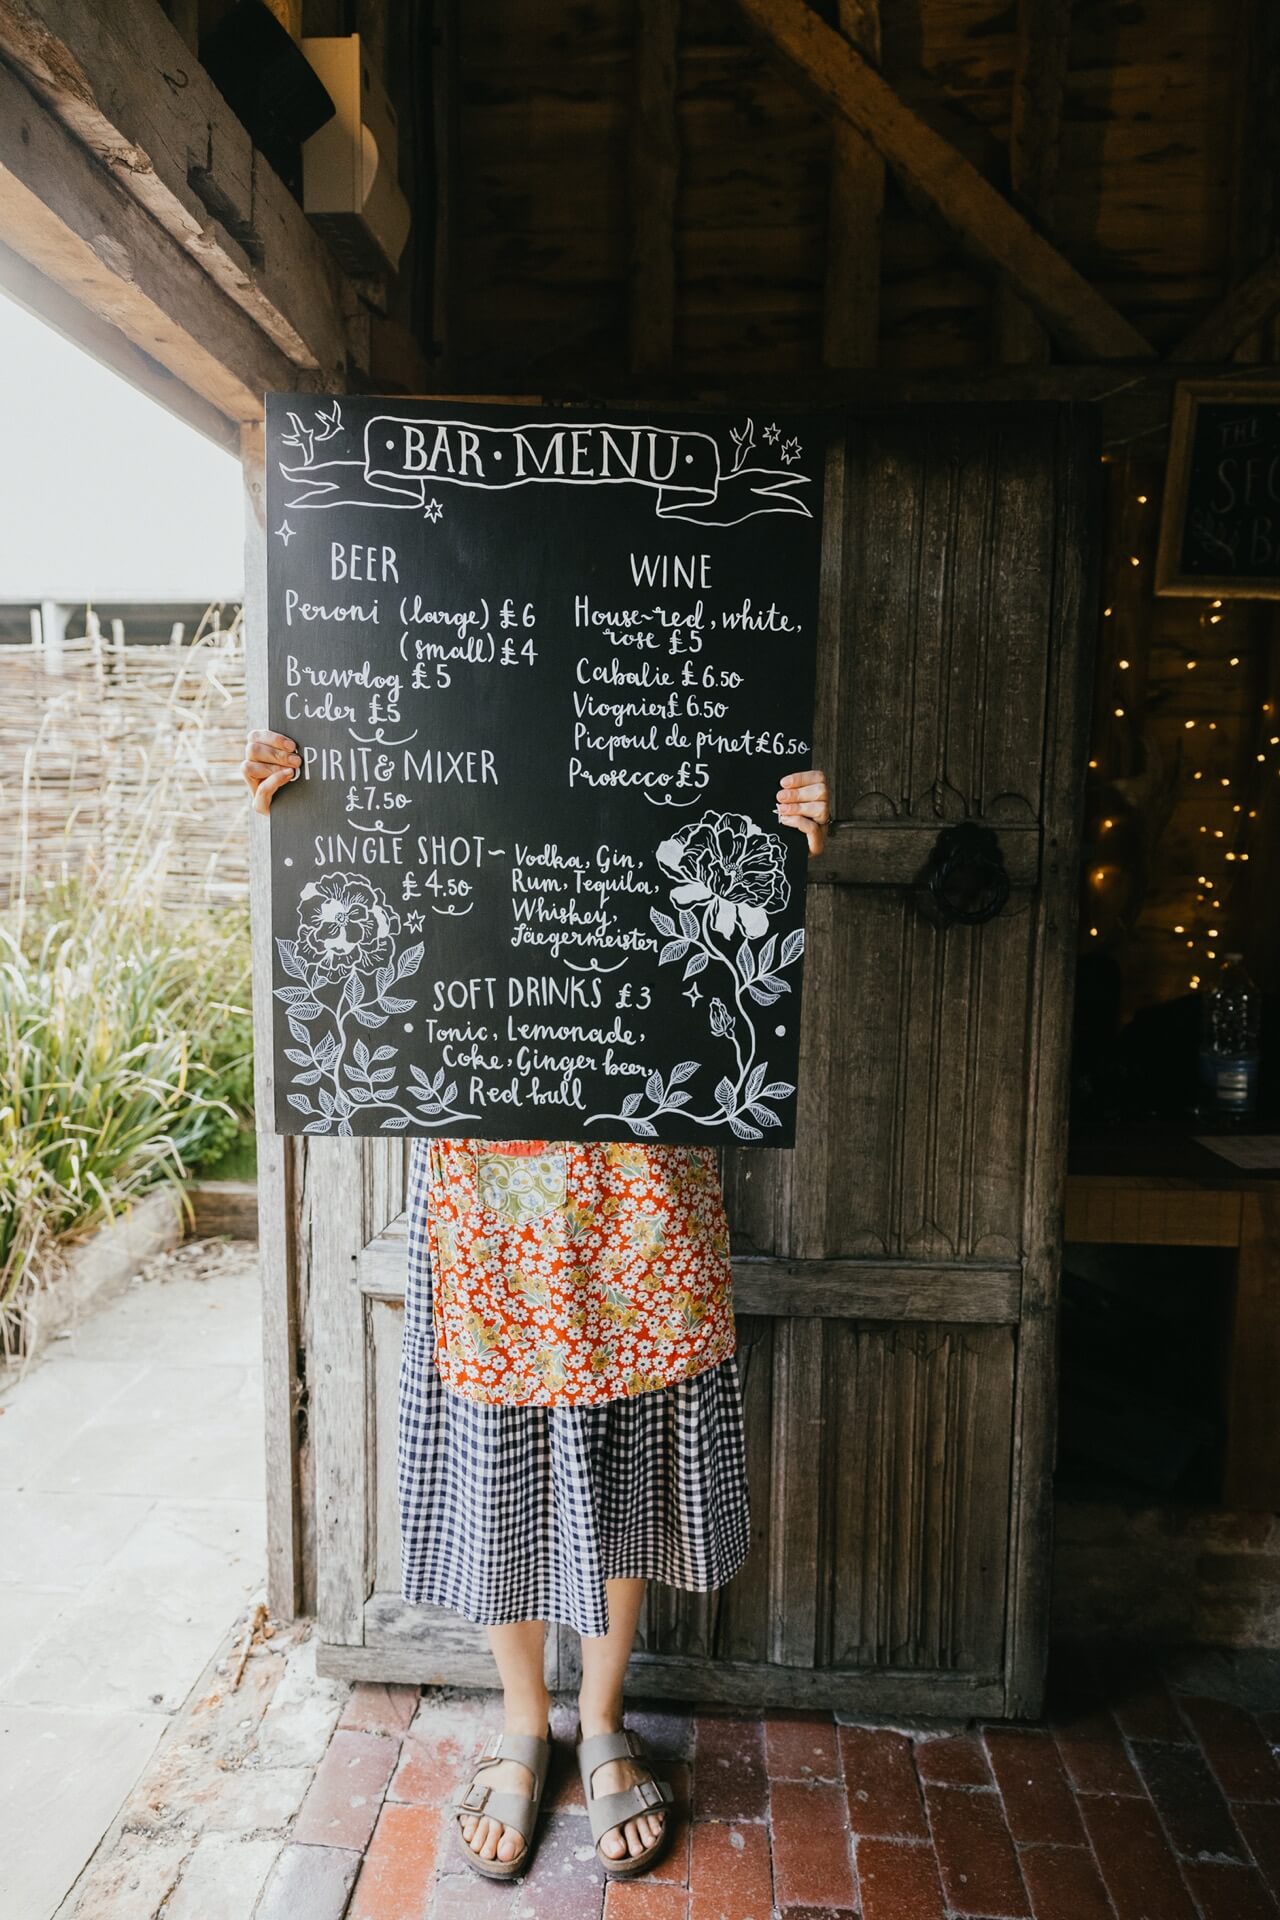 ·BAR·MENU·
BEER
Peroni (large) £6
(small) £4
Brewdog £5
Cider £5
SPIRIT & MIXER
£7.50
WINE
House~red, white,
rosé £5
Cabalie £6.50
Viognier £6.50
Picpoul de pinet £6.50
Prosecco £5
SINGLE SHOT~
£4.50
Vodka, Gin,
Rum, Tequila,
Whiskey,
Jäegermeister
SOFT DRINKS £3
Tonic, Lemonade,
Coke, Ginger beer,
Red bull
THE